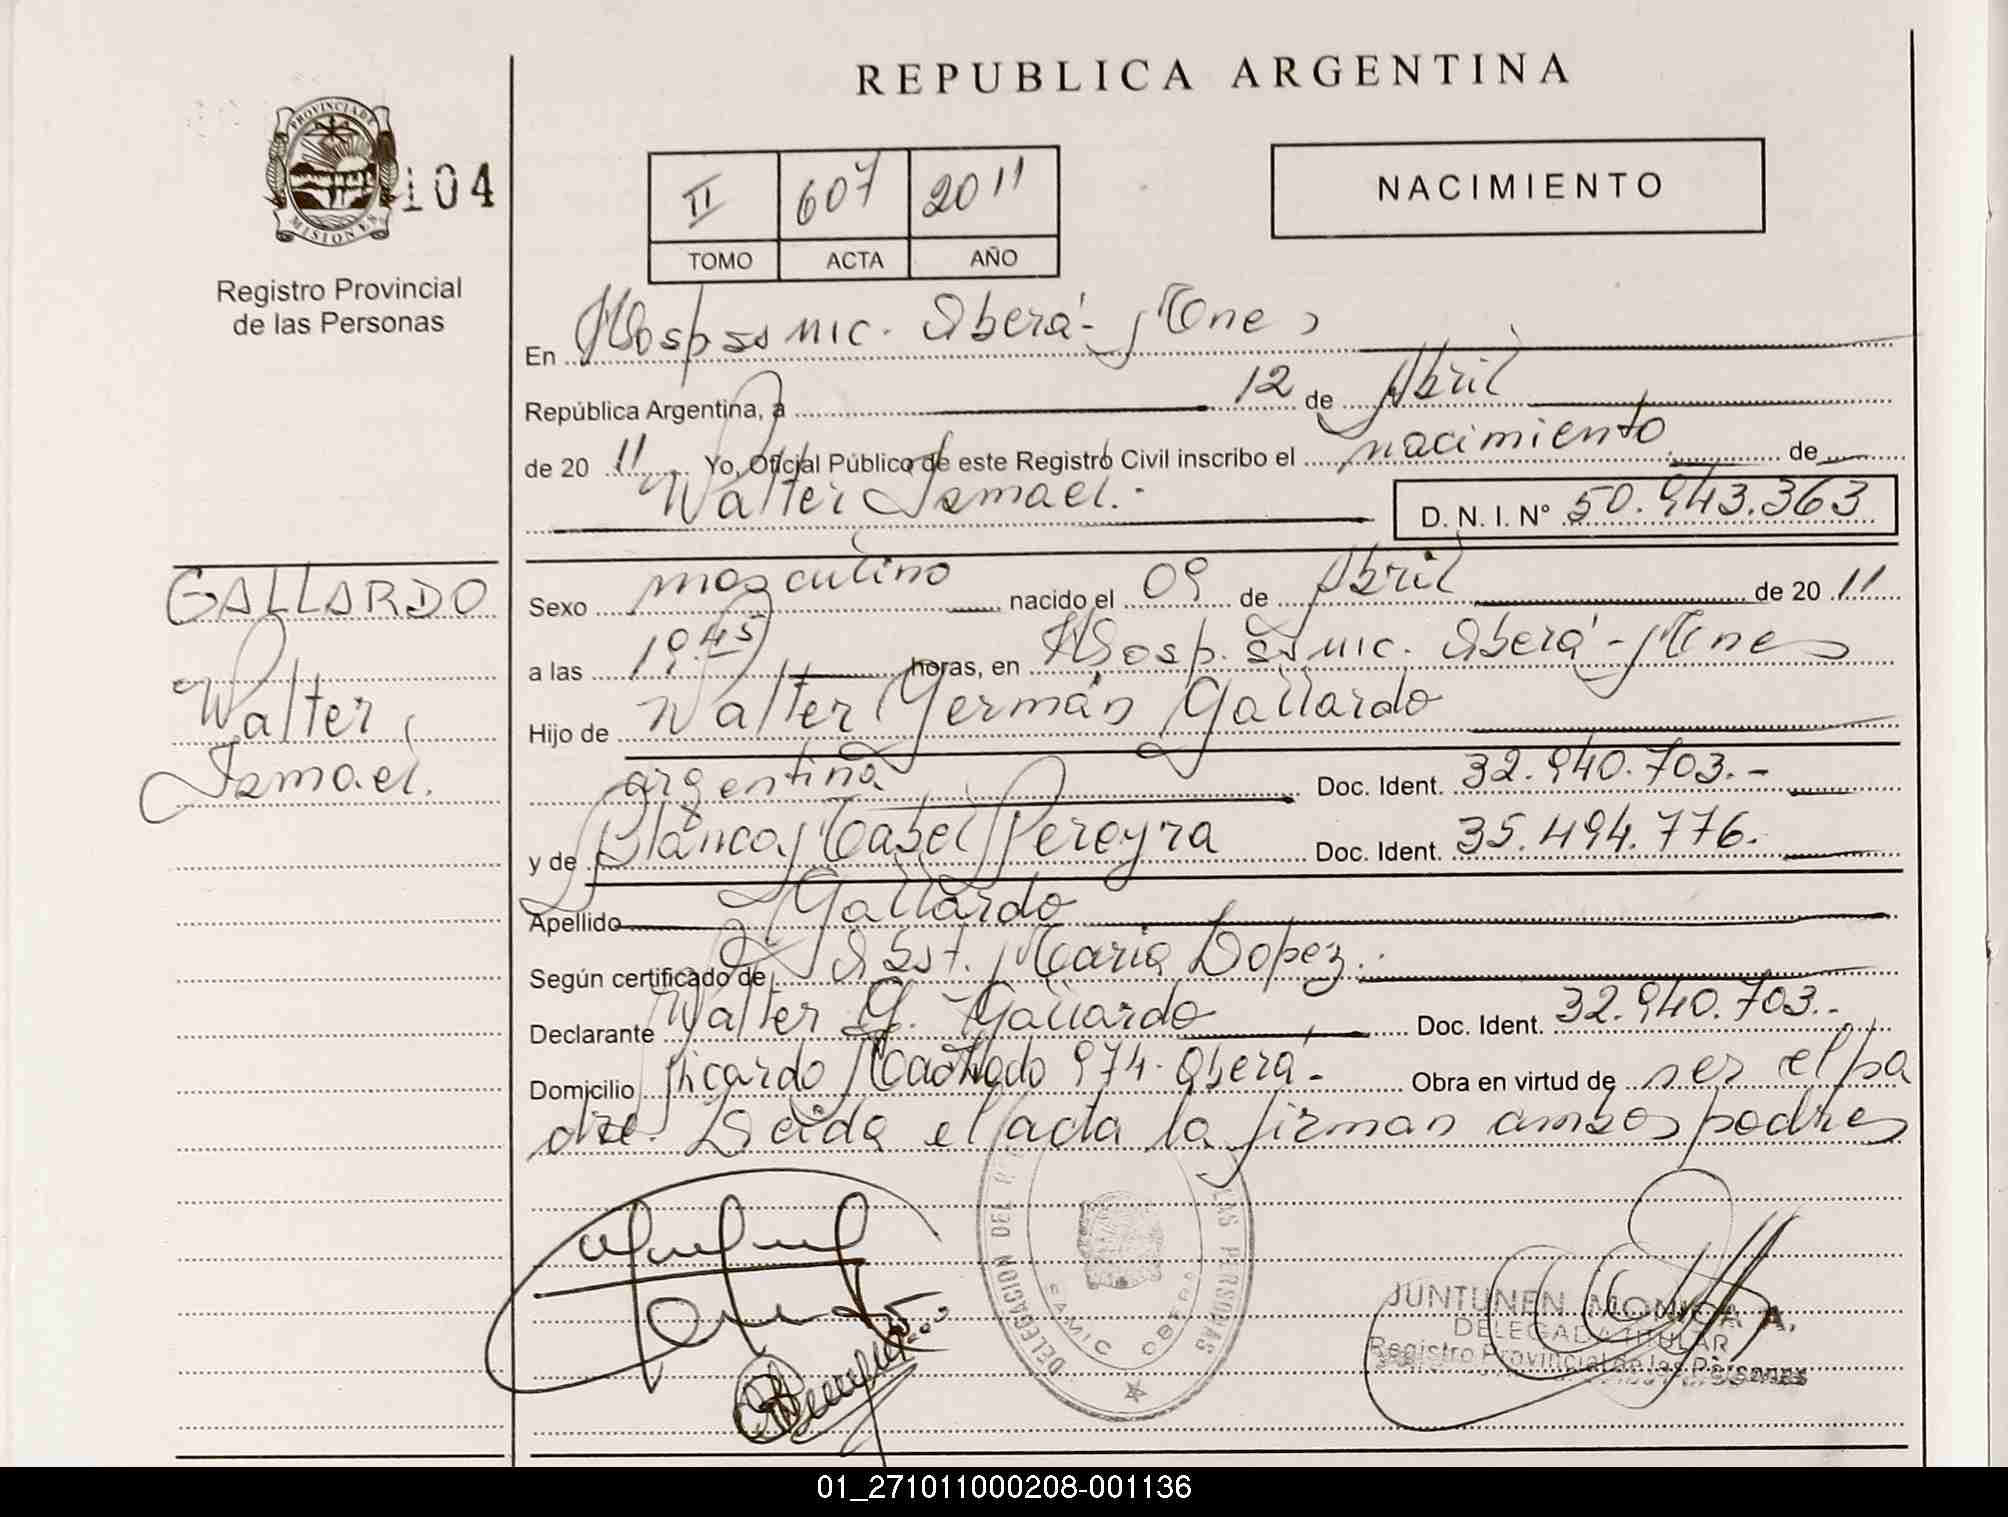 REPUBLICA ARGENTINA
PROVINCIA DE
MISIONES
104
Registro Provincial
de las Personas
II 607 2011
TOMO ACTA AÑO
NACIMIENTO
En Hosp ss mic. Oberá - Mnes
República Argentina, a 12 de Abril
de 20 11 Yo, Oficial Público de este Registro Civil inscribo el nacimiento de
Walter Ismael.-
D. N. I. N° 50.943.363
GALLARDO
Walter
Ismael.
Sexo masculino nacido el 09 de Abril de 20 11
a las 19.45 horas, en Hosp. ss mic. Oberá - Mnes
Hijo de Walter Germán Gallardo
argentina Doc. Ident. 32.940.703.-
y de Blanca Mabel Pereyra Doc. Ident. 35.494.776.
Apellido Gallardo
Según certificado de Obst. Maria Lopez.
Declarante Walter G. Gallardo Doc. Ident. 32.940.703.-
Domicilio Ricardo Machado 974 - Oberá - Obra en virtud de ser el pa
dre. Leida el acta la firman ambos padres
DELEGACION DEL LAS PERSONAS
SAMIC OBERA
JUNTUNEN MONICA A.
DELEGADA TITULAR
Registro Provincial de las Personas
01_271011000208-001136